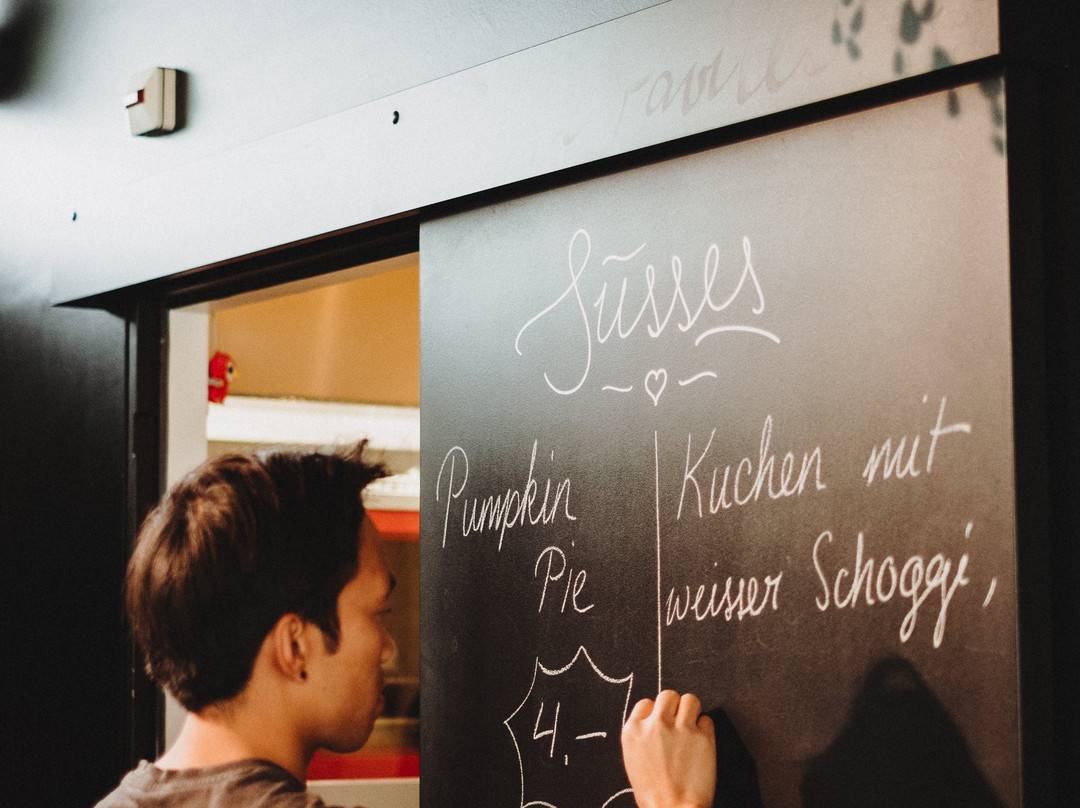 Süsses
Pumpkin
Pie
4.-
Kuchen mit
weisser Schoggi,